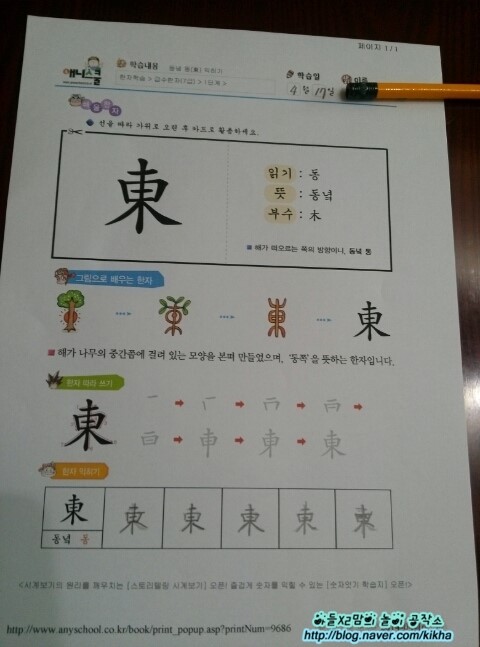 페이지 1 / 1
애니스쿨
학습내용 동녘 동(東) 익히기
한자학습 > 급수한자(7급) > 1단계 >
학습일
이름
4월 17일
배울한자
선을 따라 가위로 오린 후 카드로 활용하세요.
東
읽기 : 동
뜻 : 동녘
부수 : 木
해가 떠오르는 쪽의 방향이니, 동녘 동
그림으로 배우는 한자
東
해가 나무의 중간쯤에 걸려 있는 모양을 본떠 만들었으며, '동쪽'을 뜻하는 한자입니다.
한자 따라 쓰기
東
申 東 東
한자 익히기
東 東 東 東 東 東
동녘 동
<시계보기의 원리를 깨우치는 [스토리텔링 시계보기] 오픈! 즐겁게 숫자를 익힐 수 있는 [숫자잇기 학습지] 오픈!>
http://www.anyschool.co.kr/book/print_popup.asp?printNum=9686
아들둘맘의 놀이 공작소
http://blog.naver.com/kikha